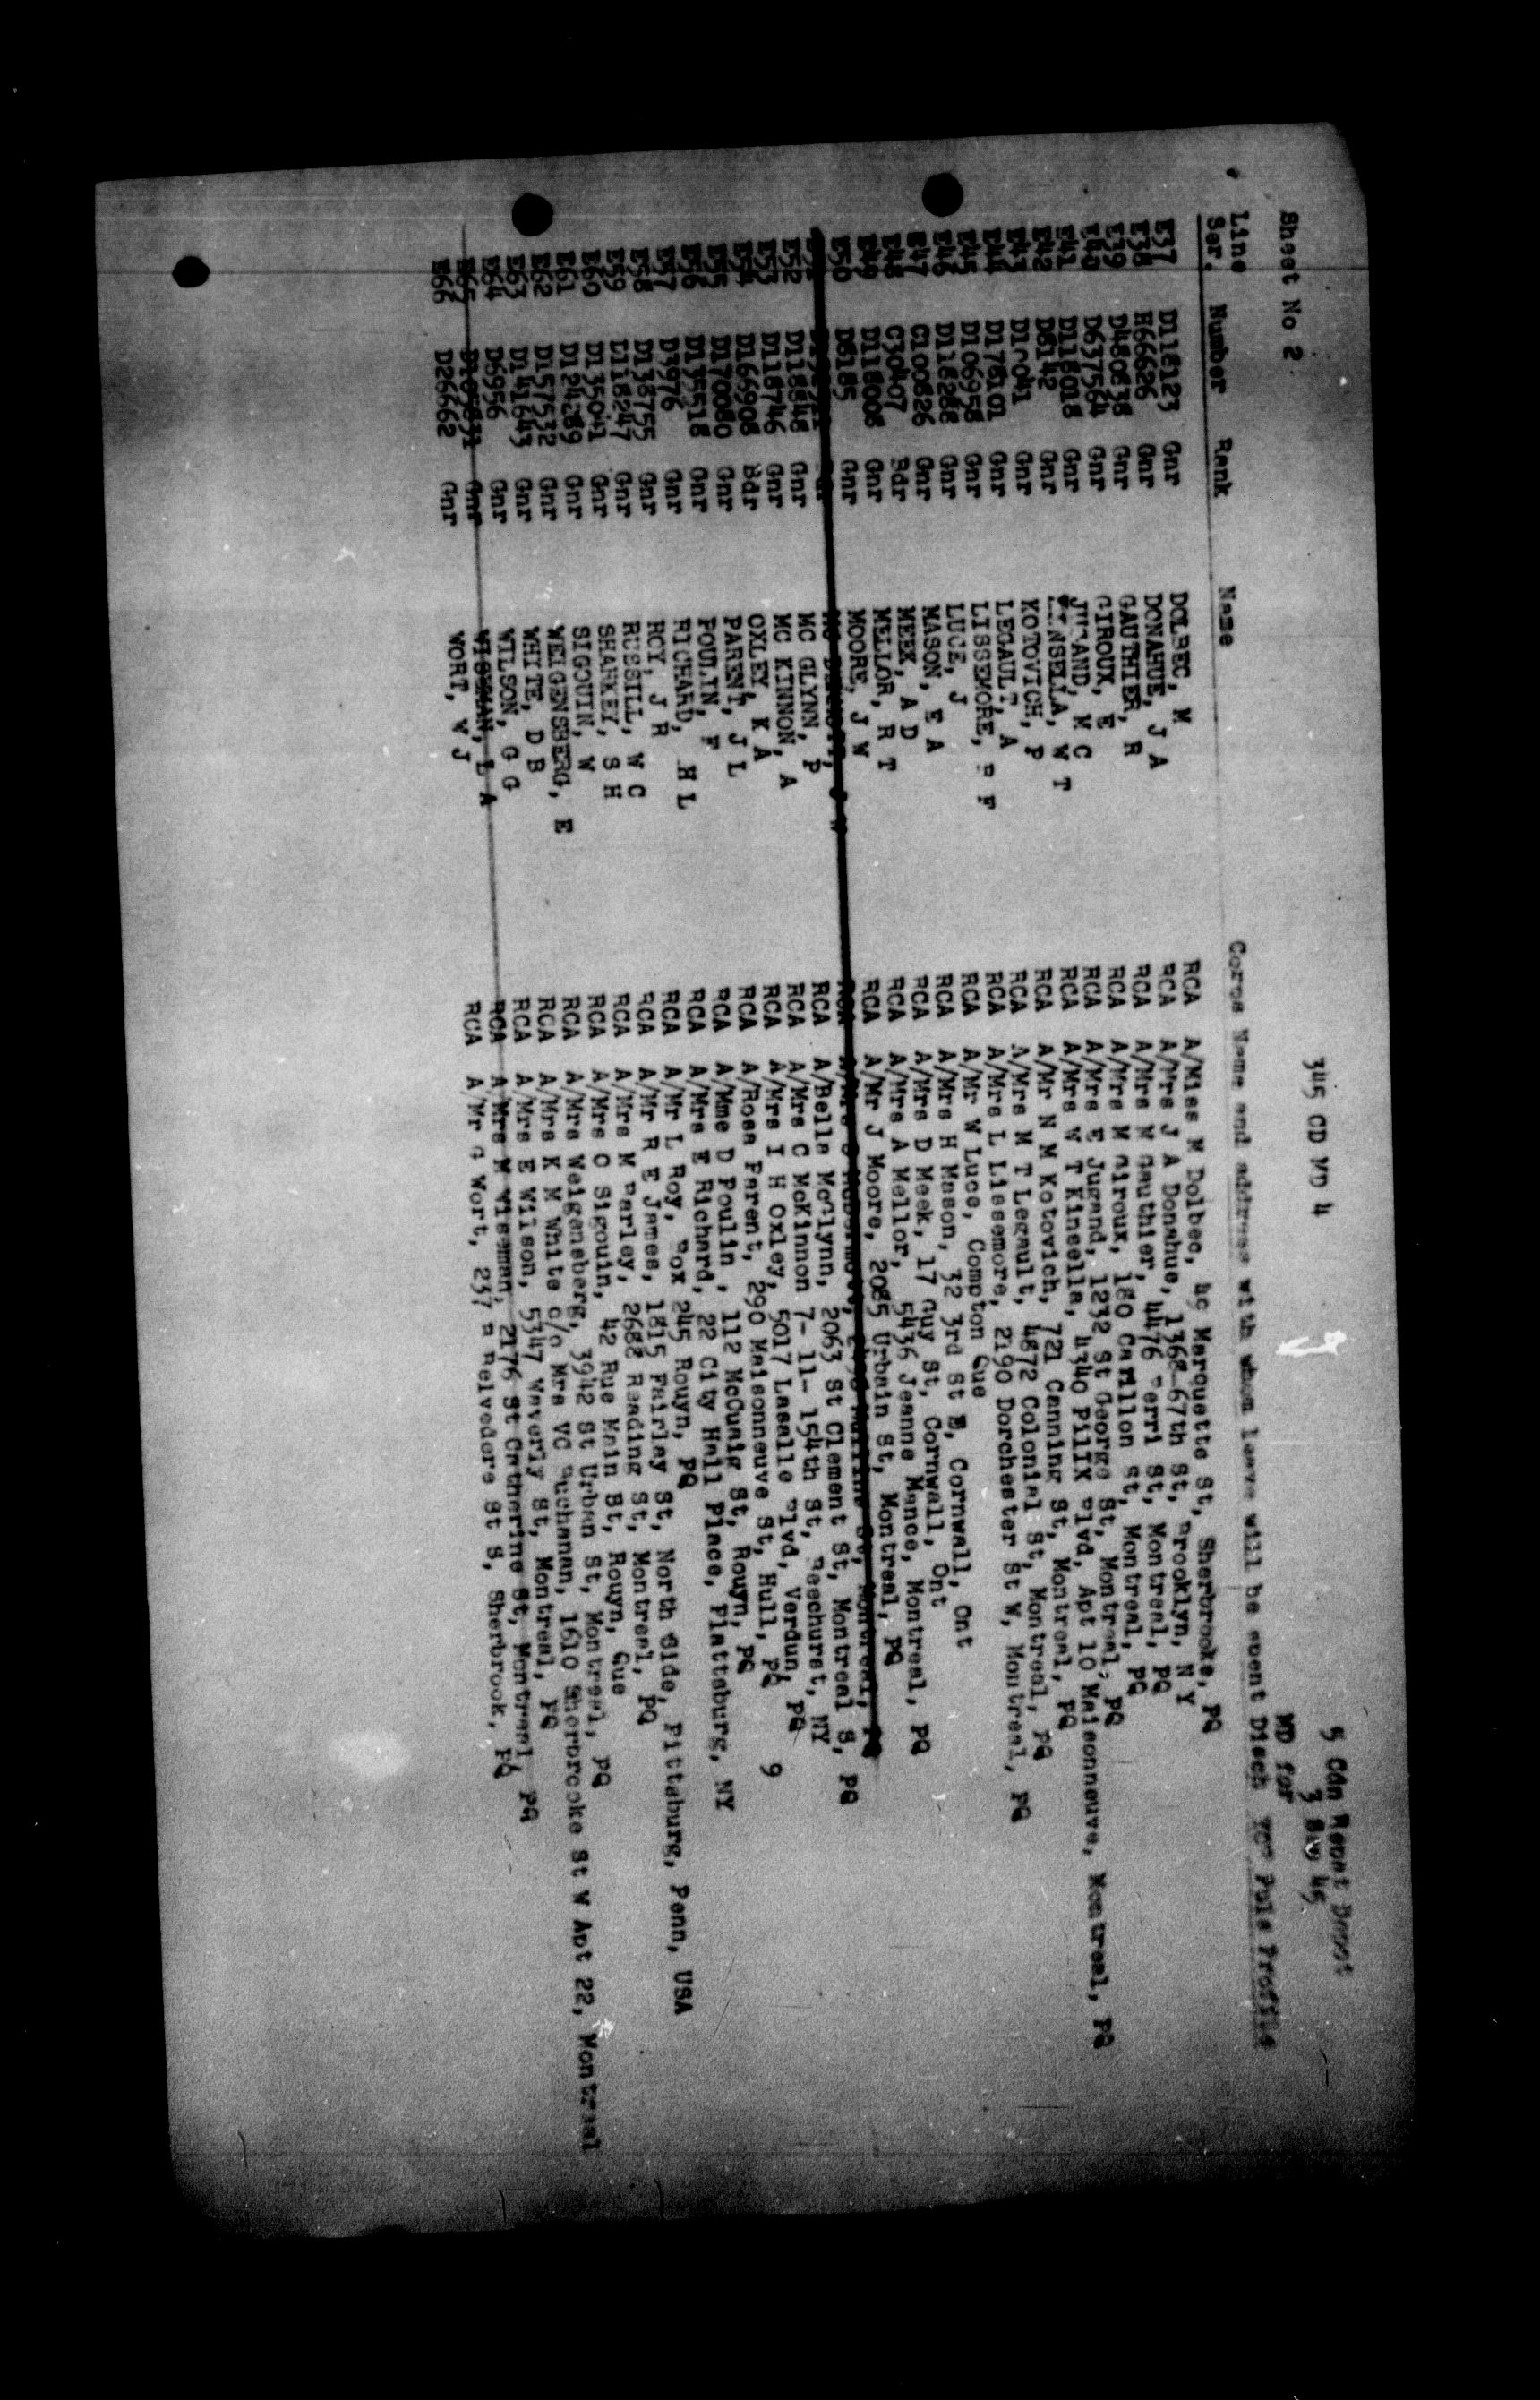 Sheet No 2 345 CD MD 4 5 Cdn Repat Depot
MD for 3 45
Line
Ser. Number Rank Name Corps Name and address with whom leave will be spent Disch Puls Profile
E37 D118123 Gnr DOLBEC, M RCA A/Miss M Dolbec, 49 Marquette St, Sherbrooke, PQ
E38 H66626 Gnr DONAHUE, J A RCA A/Mrs J A Donahue, 1368-67th St, Brooklyn, N Y
E39 D480838 Gnr GAUTHIER, R RCA A/Mrs M Gauthier, 4476 Berri St, Montreal, PQ
E40 D637564 Gnr GIROUX, E RCA A/Mrs M Giroux, 180 Carillon St, Montreal, PQ
E41 D118018 Gnr JUGAND, M C RCA A/Mrs E Jugand, 1232 St George St, Montreal, PQ
E42 D8142 Gnr KINSELLA, W T RCA A/Mrs W T Kinsella, 4340 PilIX Blvd, Apt 10 Maisonneuve, Montreal, PQ
E43 Gnr KOTOVICH, P RCA A/Mr N M Kotovich, 721 Canning St, Montreal, PQ
E44 D178101 Gnr LEGAULT, A RCA A/Mrs M T Legault, 4872 Colonial St, Montreal, PQ
E45 D106958 Gnr LISSEMORE, F RCA A/Mrs L Lissemore, 2190 Dorchester St W, Montreal, PQ
E46 D118288 Gnr LUCE, J RCA A/Mr W Luce, Compton Que
E47 C100826 Gnr MASON, E A RCA A/Mrs H Mason, 32 3rd St E, Cornwall, Ont
E48 C30407 Bdr MEEK, A D RCA A/Mrs D Meek, 17 Guy St, Cornwall, Ont
E49 D118008 Gnr MELLOR, R T RCA A/Mrs A Mellor, 5436 Jeanne Mance, Montreal, PQ
E50 D8185 Gnr MOORE, J W RCA A/Mr J Moore, 2085 Urbain St, Montreal, PQ
RCA Montreal, PQ
E52 D118848 Gnr MC GLYNN, P RCA A/Bella McGlynn, 2063 St Clement St, Montreal S, PQ
E53 D118746 Gnr MC KINNON, A RCA A/Mrs C McKinnon 7- 11- 154th St, Beechurst, NY
E54 D166908 Bdr OXLEY, K A RCA A/Mrs I H Oxley, 5017 Lasalle Blvd, Verdun, PQ
E55 D170080 Gnr PARENT, J L RCA A/Rosa Parent, 290 Maisonneuve St, Hull, PQ 9
E56 D135518 Gnr POULIN, F RCA A/Mme D Poulin , 112 McCuaig St, Rouyn, PQ
E57 D3976 Gnr RICHARD, H L RCA A/Mrs E Richard, 22 City Hall Place, Plattsburg, NY
E58 D138755 Gnr ROY, J R RCA A/Mr L Roy, Box 245 Rouyn, PQ
E59 D118247 Gnr RUSSILL, W C RCA A/Mr R E James, 1815 Fairlay St, North Side, Pittsburg, Penn, USA
E60 D135041 Gnr SHANKEY, S H RCA A/Mrs M Darley, 2688 Reading St, Montreal, PQ
E61 D124289 Gnr SIGOUIN, W RCA A/Mrs O Sigouin, 42 Rue Main St, Rouyn, Que
E62 D157532 Gnr WEIGENSBERG, E RCA A/Mrs Weigensberg, 3942 St Urban St, Montreal, PQ
E63 D141643 Gnr WHITE, D B RCA A/Mrs K M White c/o Mrs VC Buchanan, 1610 Sherbrooke St W Apt 22, Montreal
E64 D6956 Gnr WILSON, G G RCA A/Mrs E Wilson, 5347 Waverly St, Montreal, PQ
E65 D105831 Gnr WISEMAN, L A RCA A/Mrs M Wiseman, 2176 St Catherine St, Montreal, PQ
E66 D26662 Gnr WORT, W J RCA A/Mr G Wort, 237 B Belvedere St S, Sherbrook, PQ